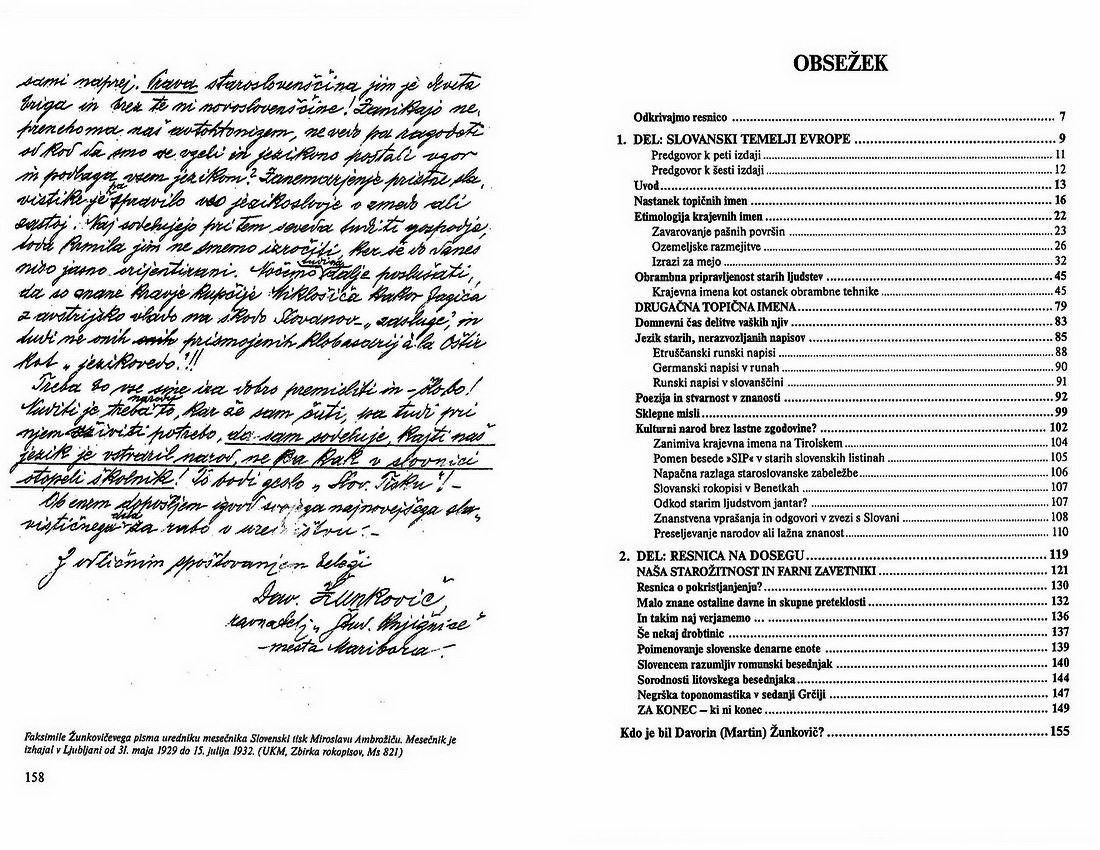 sami naprej. Prava staroslovenščina jim je deveta
briga in brez te ni novoslovenščine! Zanikajo ne-
prenehoma naš avtohtonizem, ne vedo pa zagodeti
od kod da smo se vzeli in jezikovno postali vzor
in podlaga vsem jezikom? Zanemarjenje pristne sla-
vistike je pa spravilo vso jezikoslovje v zmedo ali
zastoj. Naj sodelujejo pri tem seveda tudi ti gospodje,
toda krmila jim ne smemo izročiti, ker še do danes
niso jasno orijentirani. Nočemo tudi dalje poslušati,
da so znane kravje kupčije Miklošiča kakor Jagića
z avstrijsko vlado na škodo Slovanov „zasluge" in
tudi ne onih prismojenih klobasarij à la Oštir
kot „jezikovedo"!!!
Treba to vse sine ira dobro premisliti in
Nuditi je treba narodu to, kar še sam čuti, pa tudi pri
njem oživiti potrebo, da sam sodeluje, kajti naš
jezik je ustvaril narod, ne pa kak v slovnici
otopeli školnik! To bodi geslo „Slov. Tisku"! –
Ob enem dopošljem izvod svojega najnovejšega sla-
vističnega dela za rabo v uredništvu. –
Z odličnim spoštovanjem beleži
Dav. Žunkovič,
ravnatelj „Štud. Knjižnice"
– mesta Maribora –
Faksimile Žunkovičevega pisma uredniku mesečnika Slovenski tisk Miroslavu Ambrožiču. Mesečnik je
izhajal v Ljubljani od 31. maja 1929 do 15. julija 1932. (UKM, Zbirka rokopisov, Ms 821)
158
OBSEŽEK
Odkrivajmo resnico ... 7
1. DEL: SLOVANSKI TEMELJI EVROPE ... 9
Predgovor k peti izdaji ... 11
Predgovor k šesti izdaji ... 12
Uvod ... 13
Nastanek topičnih imen ... 16
Etimologija krajevnih imen ... 22
Zavarovanje pašnih površin ... 23
Ozemeljske razmejitve ... 26
Izrazi za mejo ... 32
Obrambna pripravljenost starih ljudstev ... 45
Krajevna imena kot ostanek obrambne tehnike ... 45
DRUGAČNA TOPIČNA IMENA ... 79
Domnevni čas delitve vaških njiv ... 83
Jezik starih, nerazvozljanih napisov ... 85
Etruščanski runski napisi ... 88
Germanski napisi v runah ... 90
Runski napisi v slovanščini ... 91
Poezija in stvarnost v znanosti ... 92
Sklepne misli ... 99
Kulturni narod brez lastne zgodovine? ... 102
Zanimiva krajevna imena na Tirolskem ... 104
Pomen besede »SIP« v starih slovenskih listinah ... 105
Napačna razlaga staroslovanske zabeležbe ... 106
Slovanski rokopisi v Benetkah ... 107
Odkod starim ljudstvom jantar? ... 107
Znanstvena vprašanja in odgovori v zvezi s Slovani ... 108
Preseljevanje narodov ali lažna znanost ... 110
2. DEL: RESNICA NA DOSEGU ... 119
NAŠA STAROŽITNOST IN FARNI ZAVETNIKI ... 121
Resnica o pokristjanjenju? ... 130
Malo znane ostaline davne in skupne preteklosti ... 132
In takim naj verjamemo ... ... 136
Še nekaj drobtinic ... 137
Poimenovanje slovenske denarne enote ... 139
Slovencem razumljiv romunski besednjak ... 140
Sorodnosti litovskega besednjaka ... 144
Negrška toponomastika v sedanji Grčiji ... 147
ZA KONEC – ki ni konec ... 149
Kdo je bil Davorin (Martin) Žunkovič? ... 155